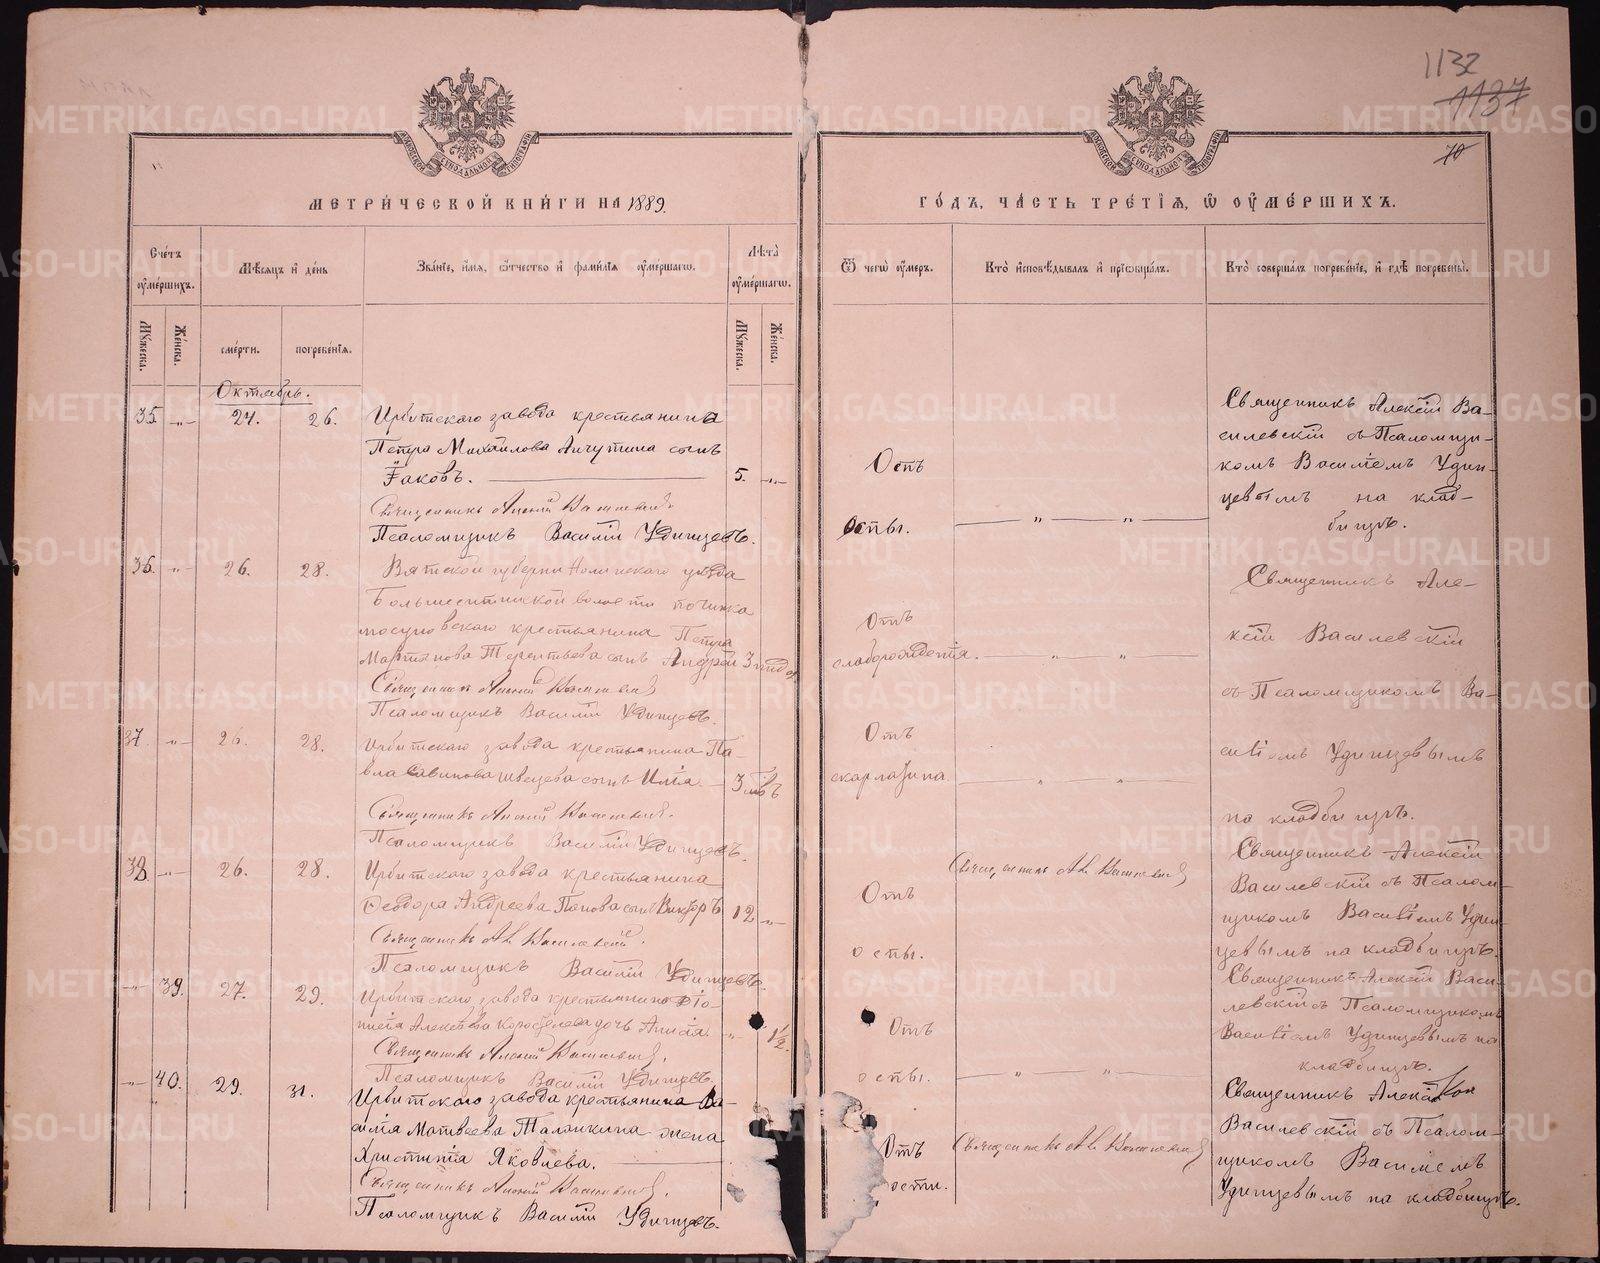 1132
1137
70
МЕТРИ́ЧЕСКОЙ КНИ́ГИ НА 1889.
ГО́ДЪ, ЧА́СТЬ ТРЕ́ТІѦ, Ѡ ОУ҆МЕ́РШИХЪ.
Сче́тъ оу҆ме́ршихъ.
Мѣ́сяцъ и҆ де́нь
Зва́ніе, и҆́мя, ѻ҆́тчество и҆ фами́лія оу҆ме́ршагѡ.
Лѣ́та оу҆ме́ршагѡ.
Ѿ чегѡ̀ оу҆́меръ.
Кто̀ и҆сповѣ́дывалъ и҆ прїѡбща́лъ.
Кто̀ соверша́лъ погребе́ніе, и҆ гдѣ̀ погребены̀.
Мꙋ́жеска.
Же́нска.
сме́рти.
погребе́нїѧ.
Мꙋ́жеска.
Же́нска.
Октябрь.
35 -„- 24. 26. Ирбитскаго завода крестьянина
Петра Михайлова Анчутина сынъ
Іаковъ. 5. -„-
Священникъ Алексій Василевскій
Псаломщикъ Василій Удинцевъ.
Отъ
оспы. „ „
Священникъ Алексій Ва-
силевскій съ Псаломщи-
комъ Василіемъ Удин-
цевымъ на клад-
бищѣ.
36. -„- 26. 28. Вятской губерніи Нолинскаго уѣзда
волости починка
крестьянина Петра
Мартинова Терентьева сынъ Андрей 3
Священникъ Алексій Василевскій
Псаломщикъ Василій Удинцевъ.
Отъ
слаборожденія. „ „
Священникъ Але-
ксій Василевскій
съ Псаломщикомъ Ва-
силіемъ Удинцевымъ
на кладбищѣ.
37. -„- 26. 28. Ирбитскаго завода крестьянина Па-
вла Савинова Швецова сынъ Илія 3
Священникъ Алексій Василевскій.
Псаломщикъ Василій Удинцевъ.
Отъ
скарлатина „ „
38. -„- 26. 28. Ирбитскаго завода крестьянина
Ѳеодора Андреева Попова сынъ Викторъ 12 „
Священникъ Ал. Василевскій.
Псаломщикъ Василій Удинцевъ.
Отъ
оспы.
Священникъ Ал. Василевскій
Священникъ Алексій
Василевскій съ Псалом-
щикомъ Василіемъ Удин-
цевымъ на кладбищѣ.
-„- 39. 27. 29. Ирбитскаго завода крестьянина
Алексѣева Коростелева дочь „ 1½.
Священникъ Алексій Василевскій.
Псаломщикъ Василій Удинцевъ.
Отъ
оспы. „ „
Священникъ Алексій Васи-
левскій съ Псаломщикомъ
Василіемъ Удинцевымъ на
кладбищѣ.
-„- 40. 29. 31. Ирбитскаго завода крестьянина Ва-
силія Матвѣева Таланкина жена
Христина Яковлева.
Священникъ Алексій Василевскій.
Псаломщикъ Василій Удинцевъ.
Отъ
Священникъ Ал. Василевскій
Священникъ Алексій
Василевскій съ Псалом-
щикомъ Василіемъ
Удинцевымъ на кладбищѣ.
METRIKI.GASO-URAL.RU